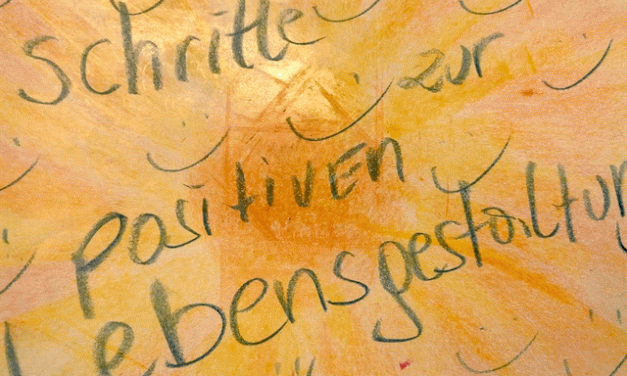 Schritte
zur
positiven
Lebensgestaltun